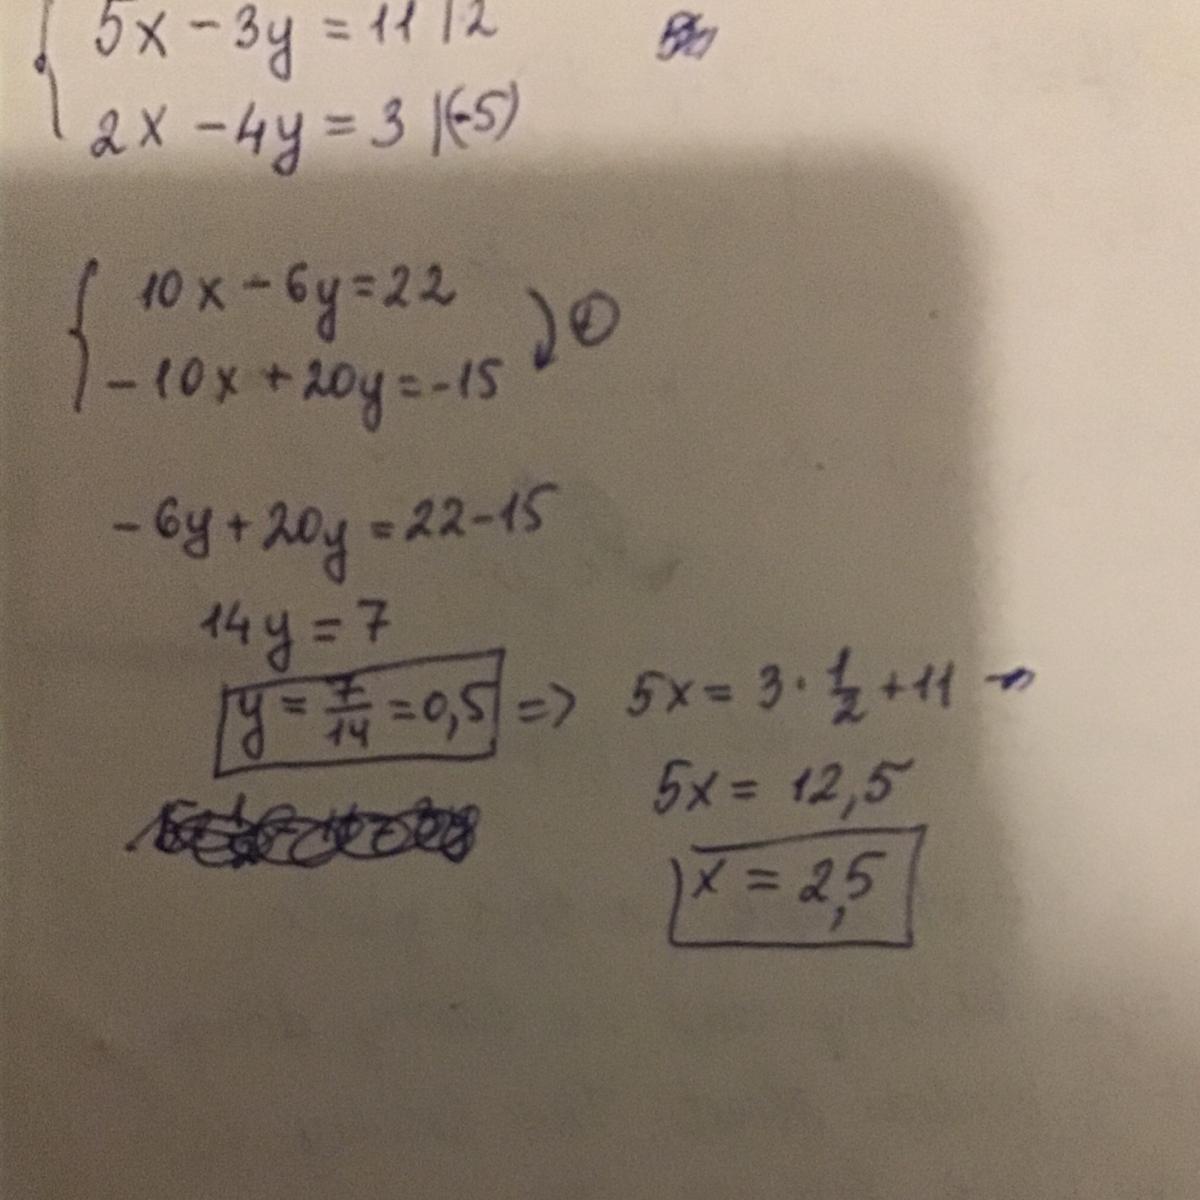 5x - 3y = 11 | 2
2x - 4y = 3 |(-5)
10x - 6y = 22
- 10x + 20y = -15
- 6y + 20y = 22 - 15
14y = 7
y = 7/14 = 0,5 => 5x = 3 · 1/2 + 11
5x = 12,5
x = 2,5